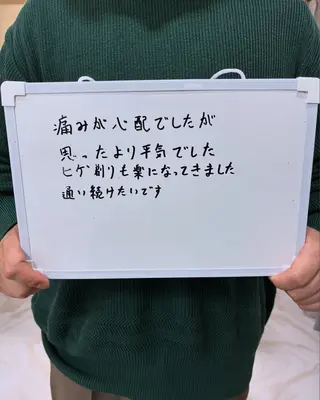 痛みが心配でしたが
思ったより平気でした
ヒゲ剃りも楽になってきました
通い続けたいです